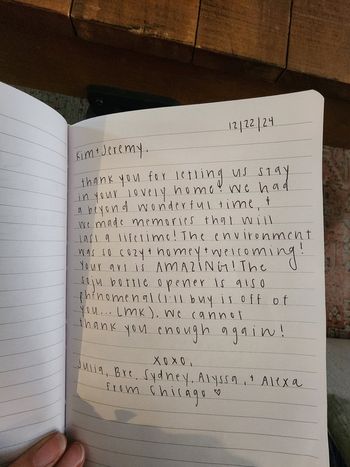 12/22/24
Kim + Jeremy,
thank you for letting us stay
in your lovely home! We had
a beyond wonderful time, +
we made memories that will
last a lifetime! The environment
was so cozy + homey + welcoming!
Your art is AMAZING! The
soju bottle opener is also
phenomenal (I'll buy it off of
you... LMK). We cannot
thank you enough again!
XOXO,
Julia, Bre, Sydney, Alyssa, + Alexa
from Chicago ♡